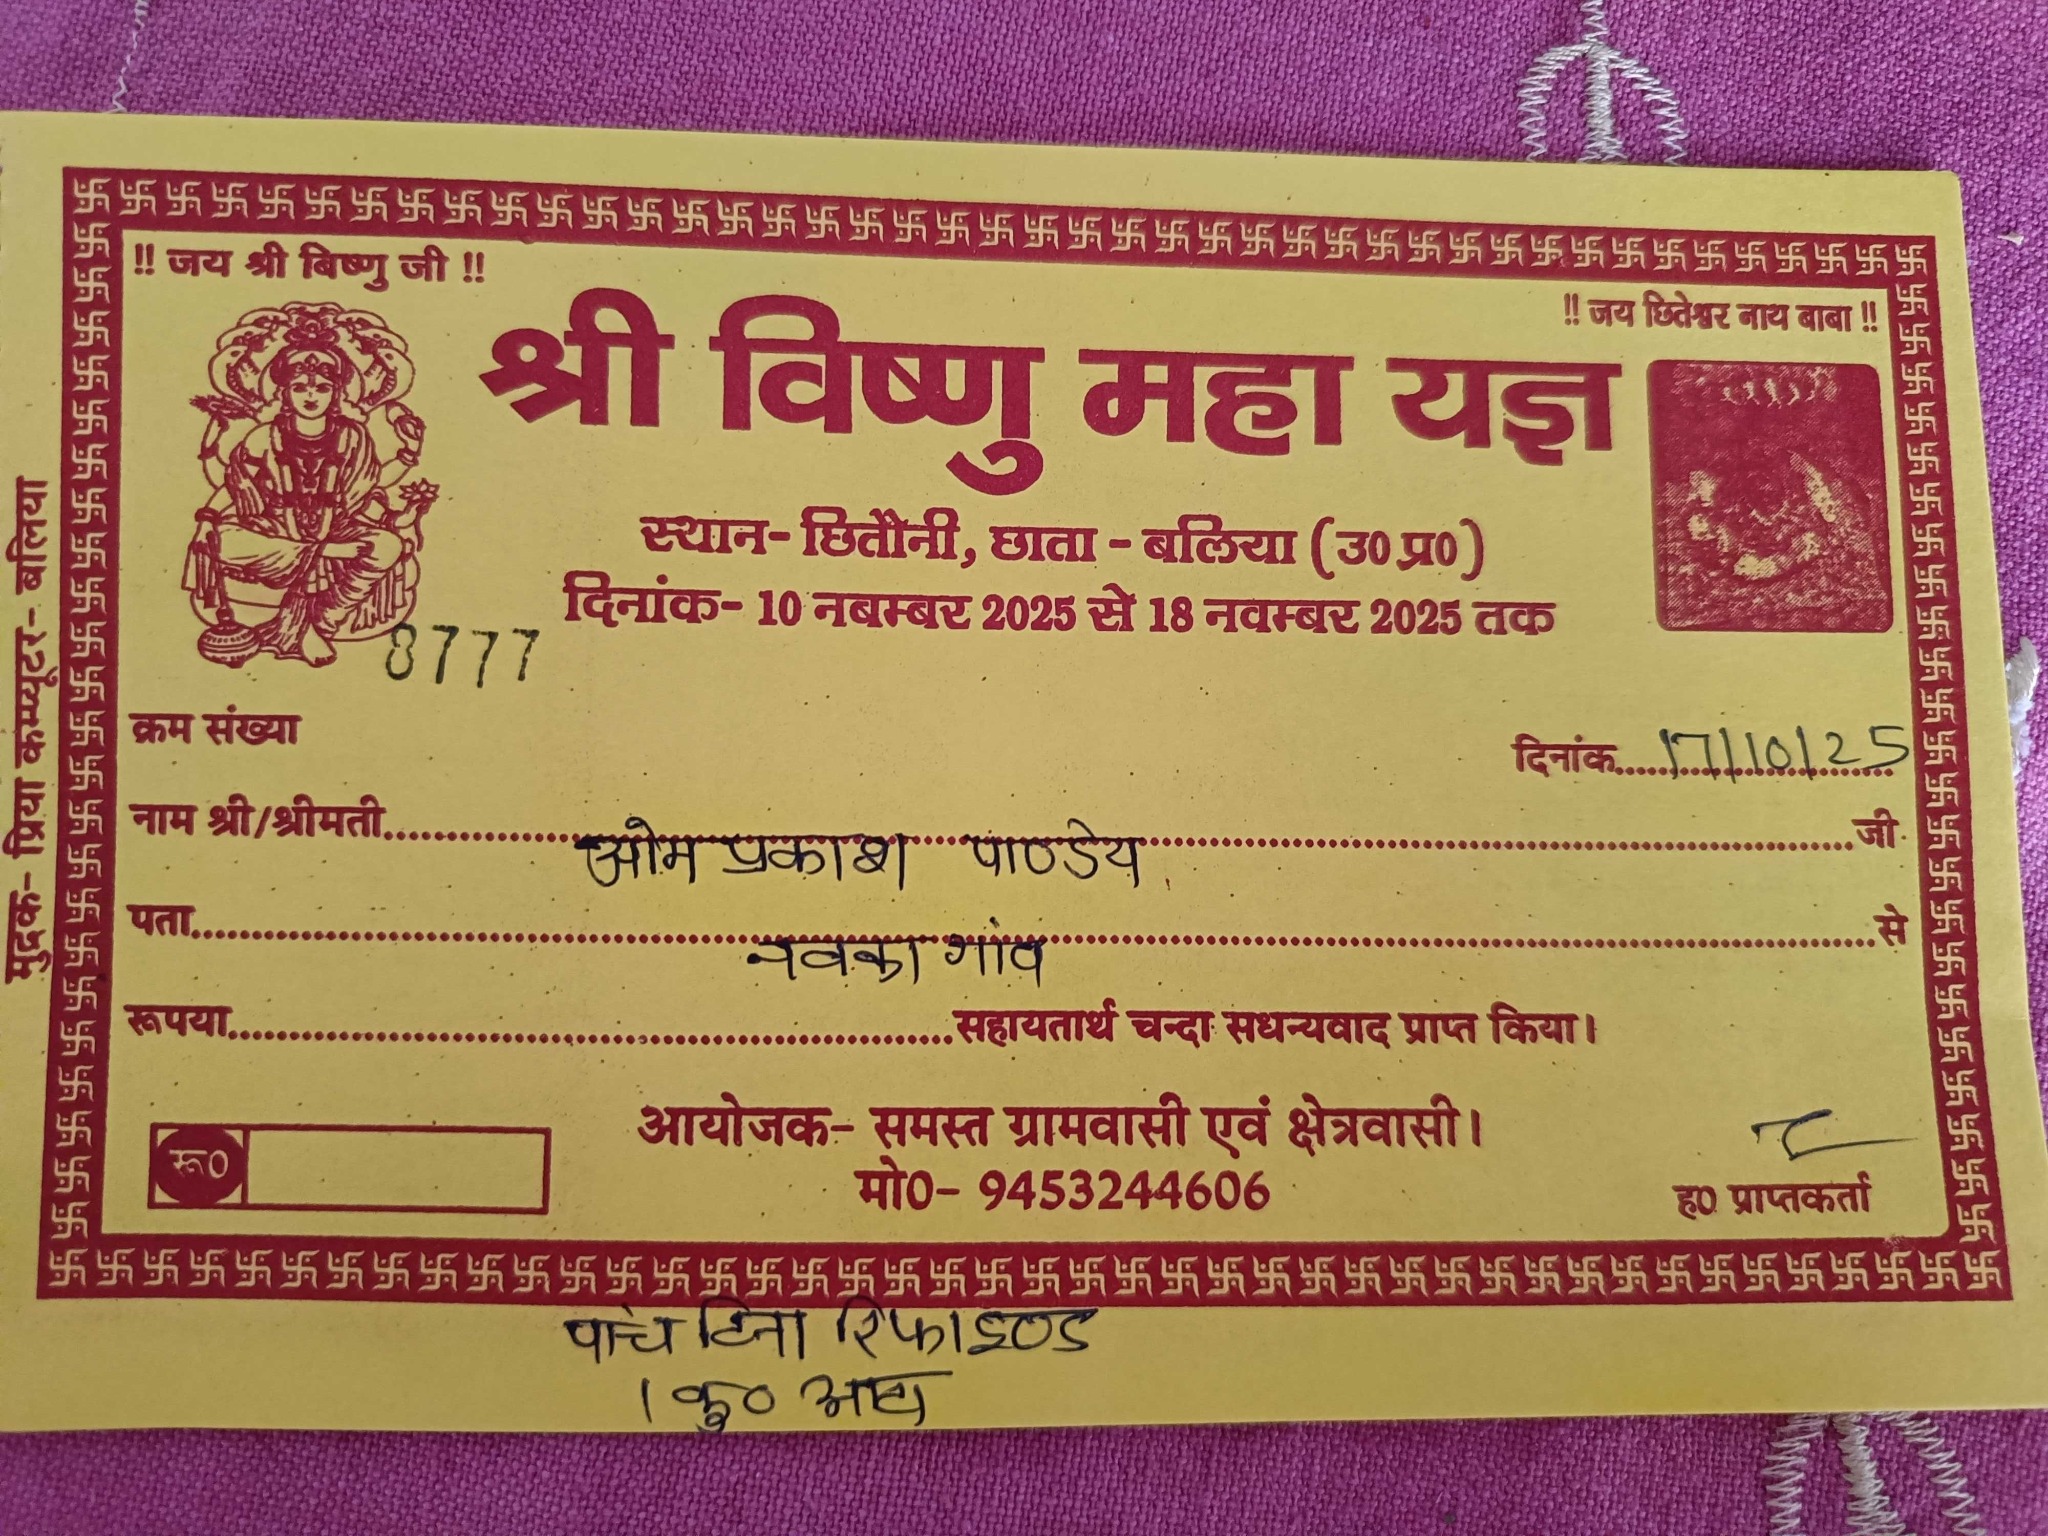 !! जय श्री बिष्णु जी !!
!! जय छितेश्वर नाथ बाबा !!
श्री विष्णु महा यज्ञ
स्थान- छितौनी, छाता - बलिया (उ0प्र0)
दिनांक- 10 नबम्बर 2025 से 18 नवम्बर 2025 तक
8777
क्रम संख्या
दिनांक 17/10/25
नाम श्री/श्रीमती ओम प्रकाश पाण्डेय जी
पता नवका गांव से
रूपया सहायतार्थ चन्दा सधन्यवाद प्राप्त किया।
रू0
आयोजक- समस्त ग्रामवासी एवं क्षेत्रवासी।
मो0- 9453244606
ह0 प्राप्तकर्ता
पांच टिना रिफाइण्ड
1 कु0
मुद्रक- प्रिया कम्प्यूटर- बलिया